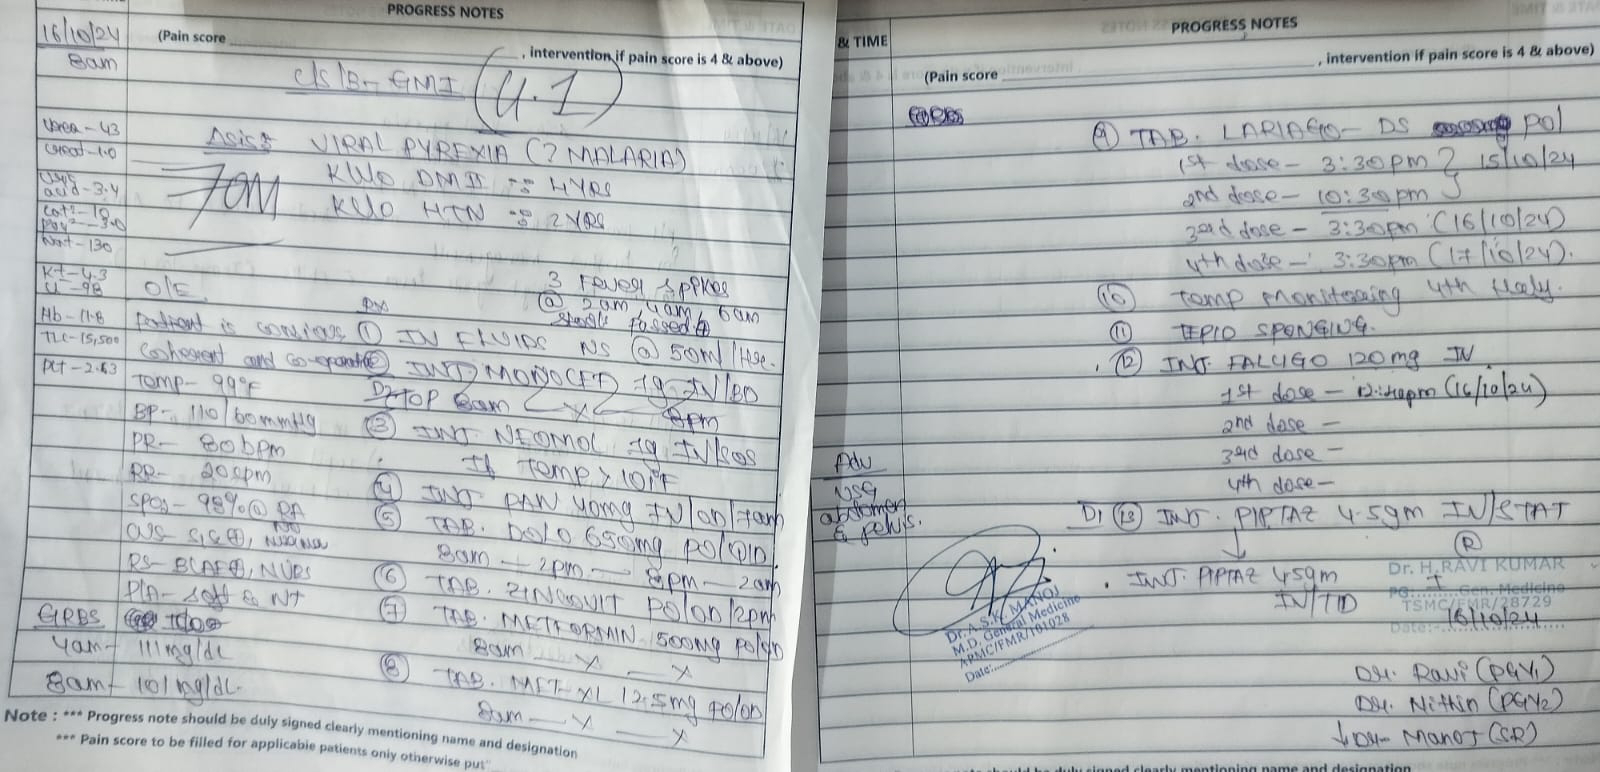 PROGRESS NOTES
16/10/24
8am
(Pain score ____________________, intervention if pain score is 4 & above)
C/S/B- GMI (4.1)
Urea - 43
Creat - 1.0
Uric acid - 3.4
Cat² - 10
Na+ - 130
K+ - 4.3
Cl - 98
Hb - 11.8
TLC - 15,500
Plt - 2.63
VIRAL PYREXIA (? MALARIA)
70M
K/C/O DM II :: 4YRS
K/C/O HTN :: 2YRS
3 Fever spikes
@ 2am, 4am, 6am
stools passed
O/E
Patient is conscious,
Coherent and co-operative
Temp - 99°F
BP - 110/60mmHg
PR - 80bpm
RR - 20cpm
SPO2 - 98% @ RA
CVS - S1S2⊕, No
RS - BLAE⊕, NVBS
P/A - soft & NT
GRBS
4am - 111mg/dL
8am - 101mg/dL.
Rx
① IV FLUIDS NS @ 50ml/Hr.
② INJ. MONOCEF 1g IV/BD
STOP 8am — x — 8pm
③ INJ. NEOMOL 1g IV/SOS
If Temp > 101°F
④ INJ PAN 40mg IV/OD/7am
⑤ TAB. DOLO 650mg PO/QID
8am — 2pm — 8pm — 2am
⑥ TAB. ZINCOVIT PO/OD/2pm
⑦ TAB. METFORMIN 500mg PO/OD
8am — x — x
⑧ TAB. MET-XL 12.5mg PO/OD
8am — x — x
Note : *** Progress note should be duly signed clearly mentioning name and designation
*** Pain score to be filled for applicable patients only otherwise put"
PROGRESS NOTES
& TIME
(Pain score ____________________, intervention if pain score is 4 & above)
⑨ TAB. LARIAGO - DS PO
1st dose - 3:30pm } 15/10/24
2nd dose - 10:30pm
3rd dose - 3:30pm (16/10/24)
4th dose - 3:30pm (17/10/24).
⑩ Temp monitoring 4th Hrly.
⑪ TEPID SPONGING.
⑫ INJ. FALCIGO 120mg IV
1st dose - 12:40pm (16/10/24)
2nd dose -
3rd dose -
4th dose -
Adv
USG
abdomen
& pelvis.
D1 ⑬ INJ. PIPTAZ 4.5gm IV/STAT
↓
INJ. PIPTAZ 4.5gm
IV/TID
Dr. A.S.K. MANOJ
M.D. General Medicine
APMC/FMR/101028
Date:
Dr. H.RAVI KUMAR
PG Gen. Medicine
TSMC/FMR/28729
Date: 16/10/24
Dr. Ravi (PGY1)
Dr. Nithin (PGY2)
Dr. Manoj (SR)